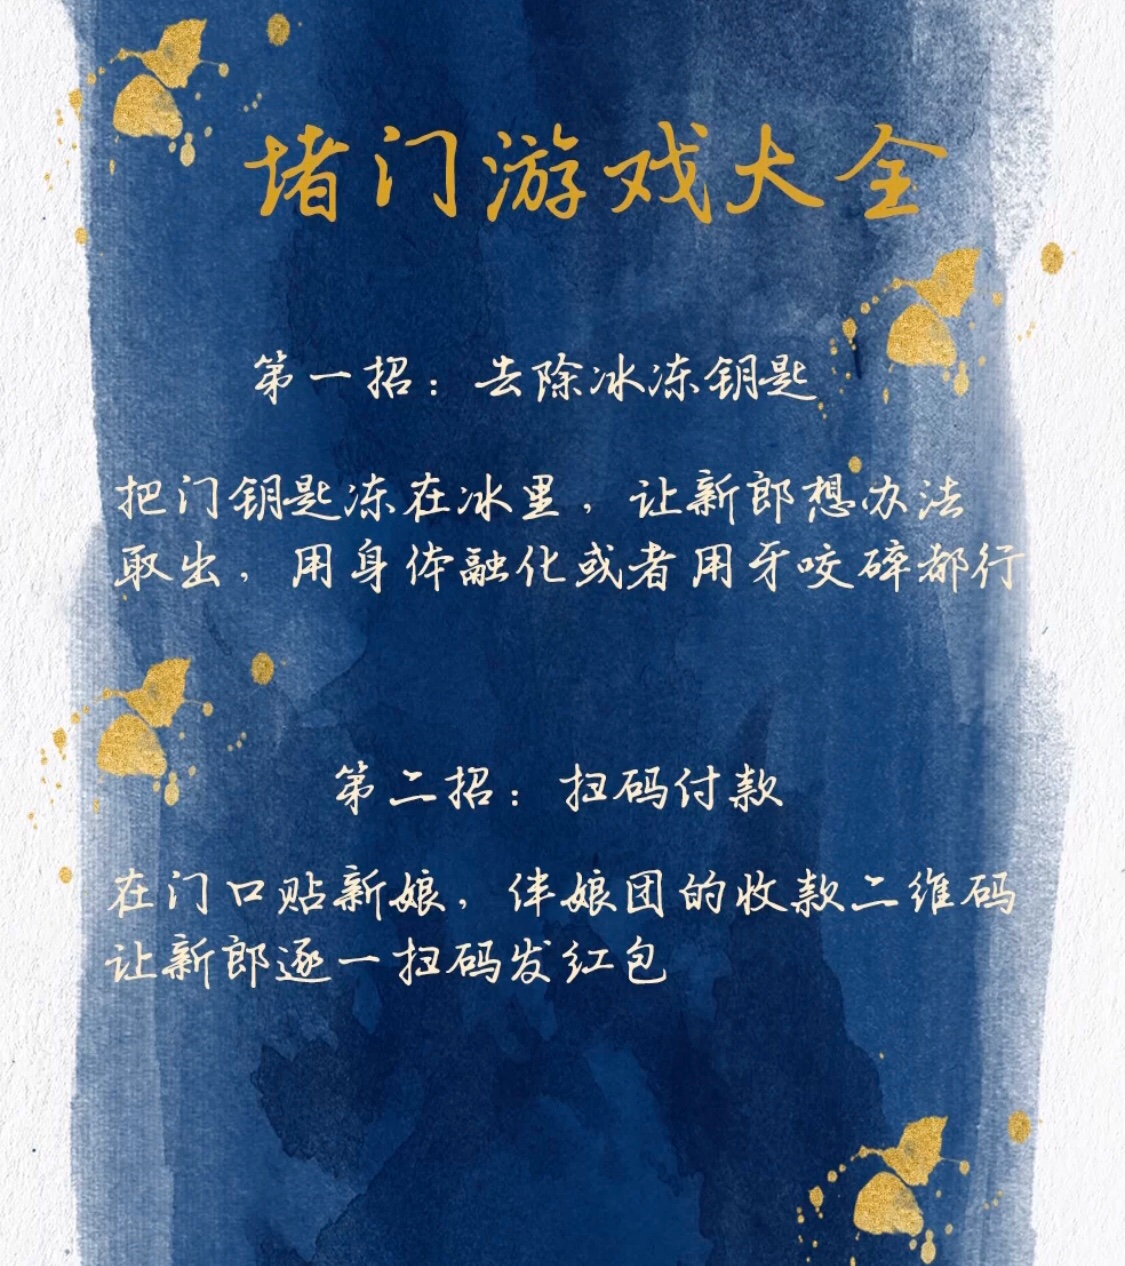 堵门游戏大全
第一招：去除冰冻钥匙
把门钥匙冻在冰里，让新郎想办法
取出，用身体融化或者用牙咬碎都行
第二招：扫码付款
在门口贴新娘，伴娘团的收款二维码
让新郎逐一扫码发红包